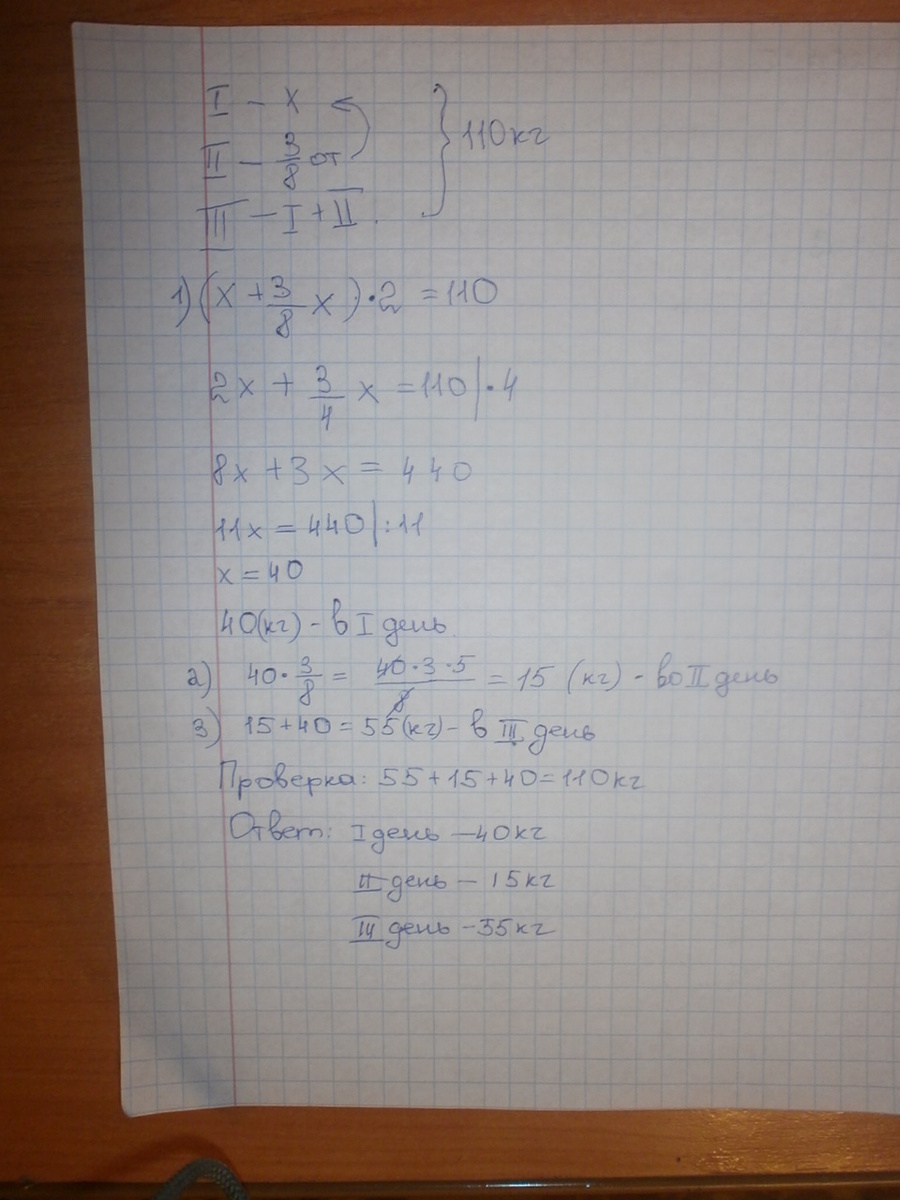 I – x
II – 3/8 от
III – I + II.
} 110кг
1) (x + 3/8 x) • 2 = 110
2x + 3/4 x = 110 | • 4
8x + 3x = 440
11x = 440 | : 11
x = 40
40(кг) - в I день.
2) 40 • 3/8 = 40 • 3 • 5/8 = 15 (кг) - во II день
3) 15 + 40 = 55(кг) - в III день
Проверка: 55 + 15 + 40 = 110кг
Ответ: I день — 40кг
II день — 15кг
III день - 55кг